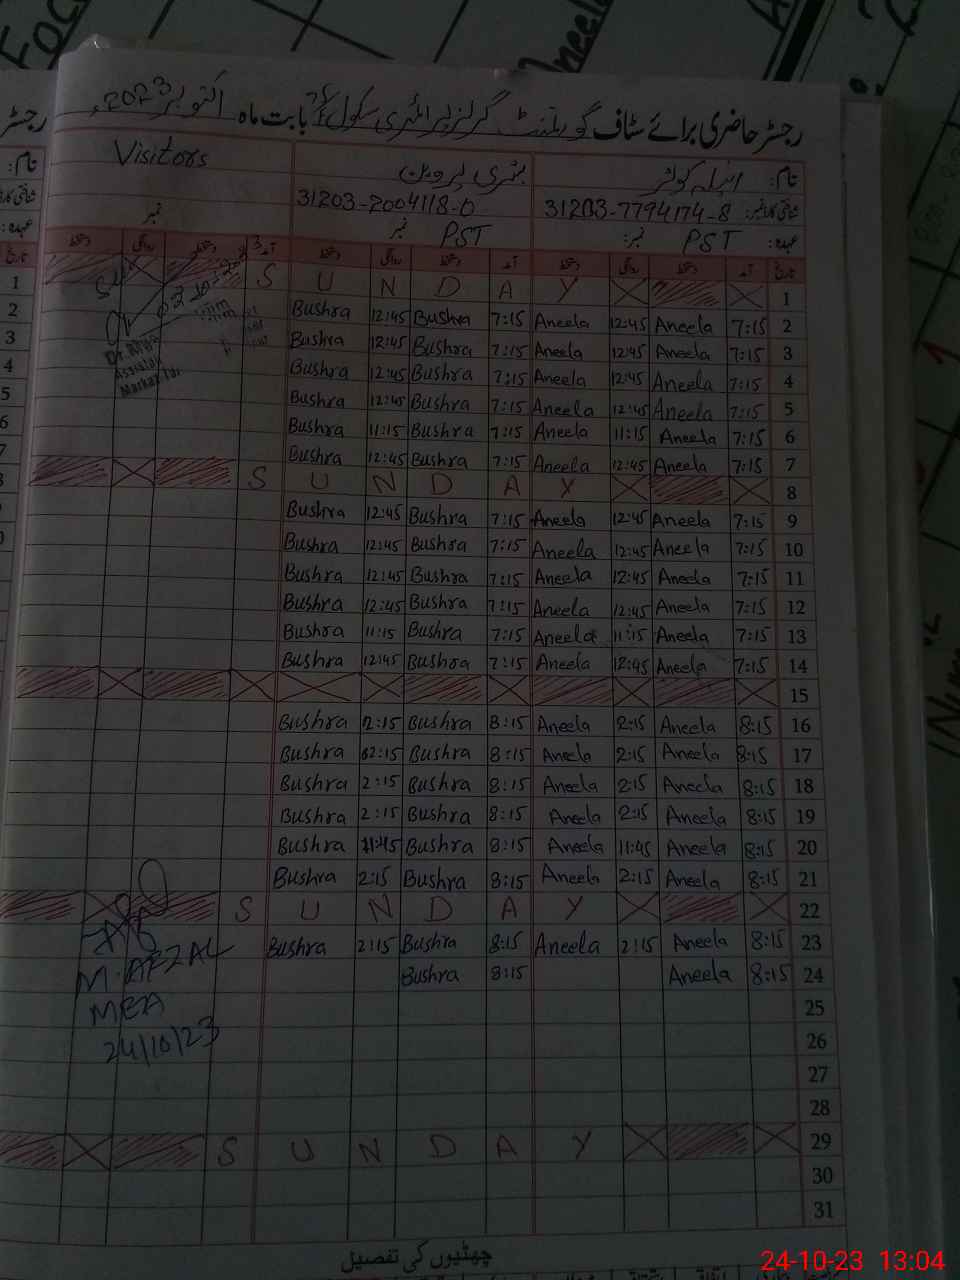 رجسٹر حاضری برائے سٹاف گورنمنٹ گرلز پرائمری سکول بابت ماہ اکتوبر 2023ء
نام: انیلہ کوثر بشری پروین Visitors
شناختی کارڈ نمبر: 31203-7794174-8 31203-2004118-0
عہدہ: PST نمبر: PST نمبر نمبر
تاریخ آمد دستخط روانگی دستخط آمد دستخط روانگی دستخط آمد دستخط روانگی دستخط
S U N D A Y 1
Bushra 12:45 Bushra 7:15 Aneela 12:45 Aneela 7:15 2
Bushra 12:45 Bushra 7:15 Aneela 12:45 Aneela 7:15 3
Bushra 12:45 Bushra 7:15 Aneela 12:45 Aneela 7:15 4
Bushra 12:45 Bushra 7:15 Aneela 12:45 Aneela 7:15 5
Bushra 11:15 Bushra 7:15 Aneela 11:15 Aneela 7:15 6
Bushra 12:45 Bushra 7:15 Aneela 12:45 Aneela 7:15 7
S U N D A Y 8
Bushra 12:45 Bushra 7:15 Aneela 12:45 Aneela 7:15 9
Bushra 12:45 Bushra 7:15 Aneela 12:45 Aneela 7:15 10
Bushra 12:45 Bushra 7:15 Aneela 12:45 Aneela 7:15 11
Bushra 12:45 Bushra 7:15 Aneela 12:45 Aneela 7:15 12
Bushra 11:15 Bushra 7:15 Aneela 11:15 Aneela 7:15 13
Bushra 12:45 Bushra 7:15 Aneela 12:45 Aneela 7:15 14
15
Bushra 2:15 Bushra 8:15 Aneela 2:15 Aneela 8:15 16
Bushra 02:15 Bushra 8:15 Aneela 2:15 Aneela 8:15 17
Bushra 2:15 Bushra 8:15 Aneela 2:15 Aneela 8:15 18
Bushra 2:15 Bushra 8:15 Aneela 2:15 Aneela 8:15 19
Bushra 11:45 Bushra 8:15 Aneela 11:45 Aneela 8:15 20
Bushra 2:15 Bushra 8:15 Aneela 2:15 Aneela 8:15 21
S U N D A Y 22
Bushra 2:15 Bushra 8:15 Aneela 2:15 Aneela 8:15 23
Bushra 8:15 Aneela 8:15 24
M. AFZAL
MEA
24/10/23
25
26
27
28
S U N D A Y 29
30
31
چھٹیوں کی تفصیل
24-10-23 13:04